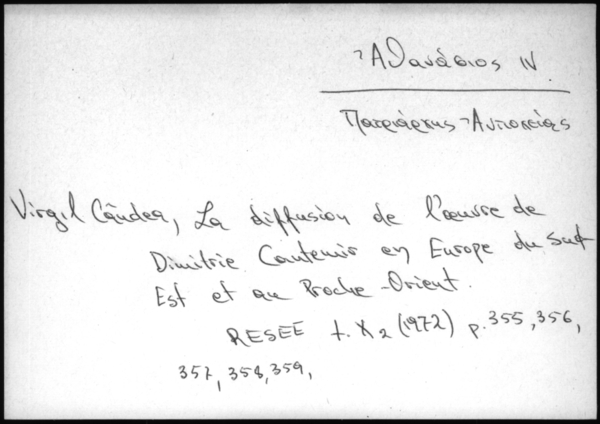 Ἀθανάσιος IV.
Πατριάρχης Ἀντιοχείας
Virgil Cândea, La diffusion de l'œuvre de
Dimitrie Cantemir en Europe du Sud-
Est et au Proche-Orient.
RESEE t. X₂ (1972) p. 355, 356,
357, 358, 359,